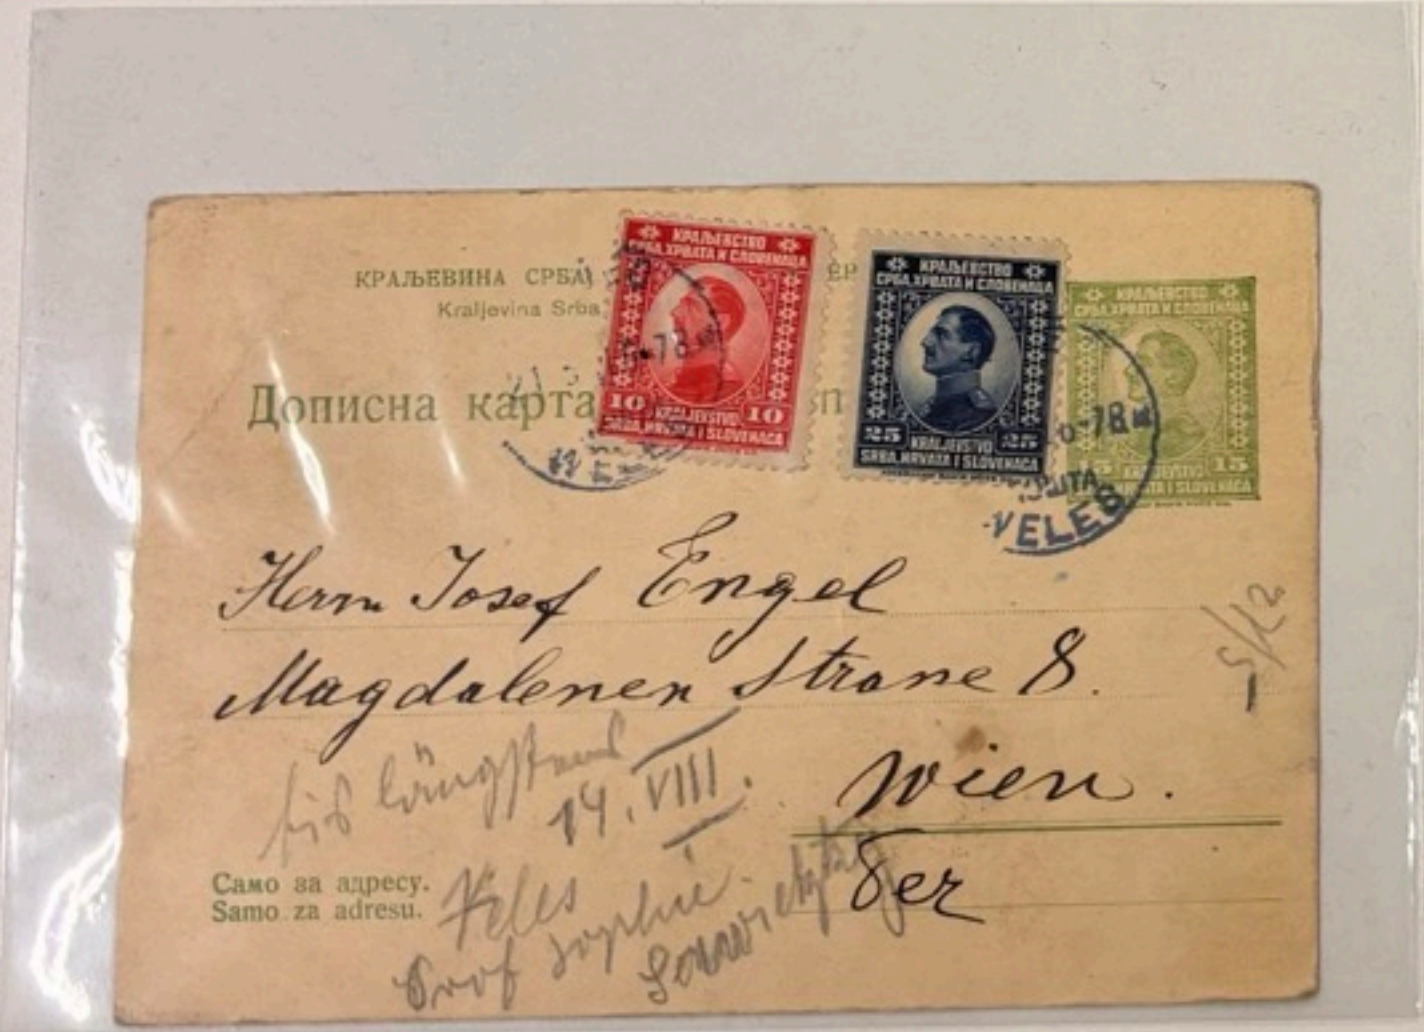 КРАЉЕВИНА СРБА,
Kraljevina Srba,
Дописна карта
КРАЉЕВСТВО
СРБА, ХРВАТА И СЛОВЕНАЦА
10 10
KRALJEVSTVO
SRBA, HRVATA I SLOVENACA
КРАЉЕВСТВО
СРБА, ХРВАТА И СЛОВЕНАЦА
25 25
KRALJEVSTVO
SRBA, HRVATA I SLOVENACA
КРАЉЕВСТВО
СРБА, ХРВАТА И СЛОВЕНАЦА
15
KRALJEVSTVO
HRVATA I SLOVENACA
VELES
Herrn Josef Engel
Magdalenen Strane 8.
Wien.
bis längstens
14. VIII.
5/12
Само за адресу.
Samo za adresu.
Veles
Prof Sophie